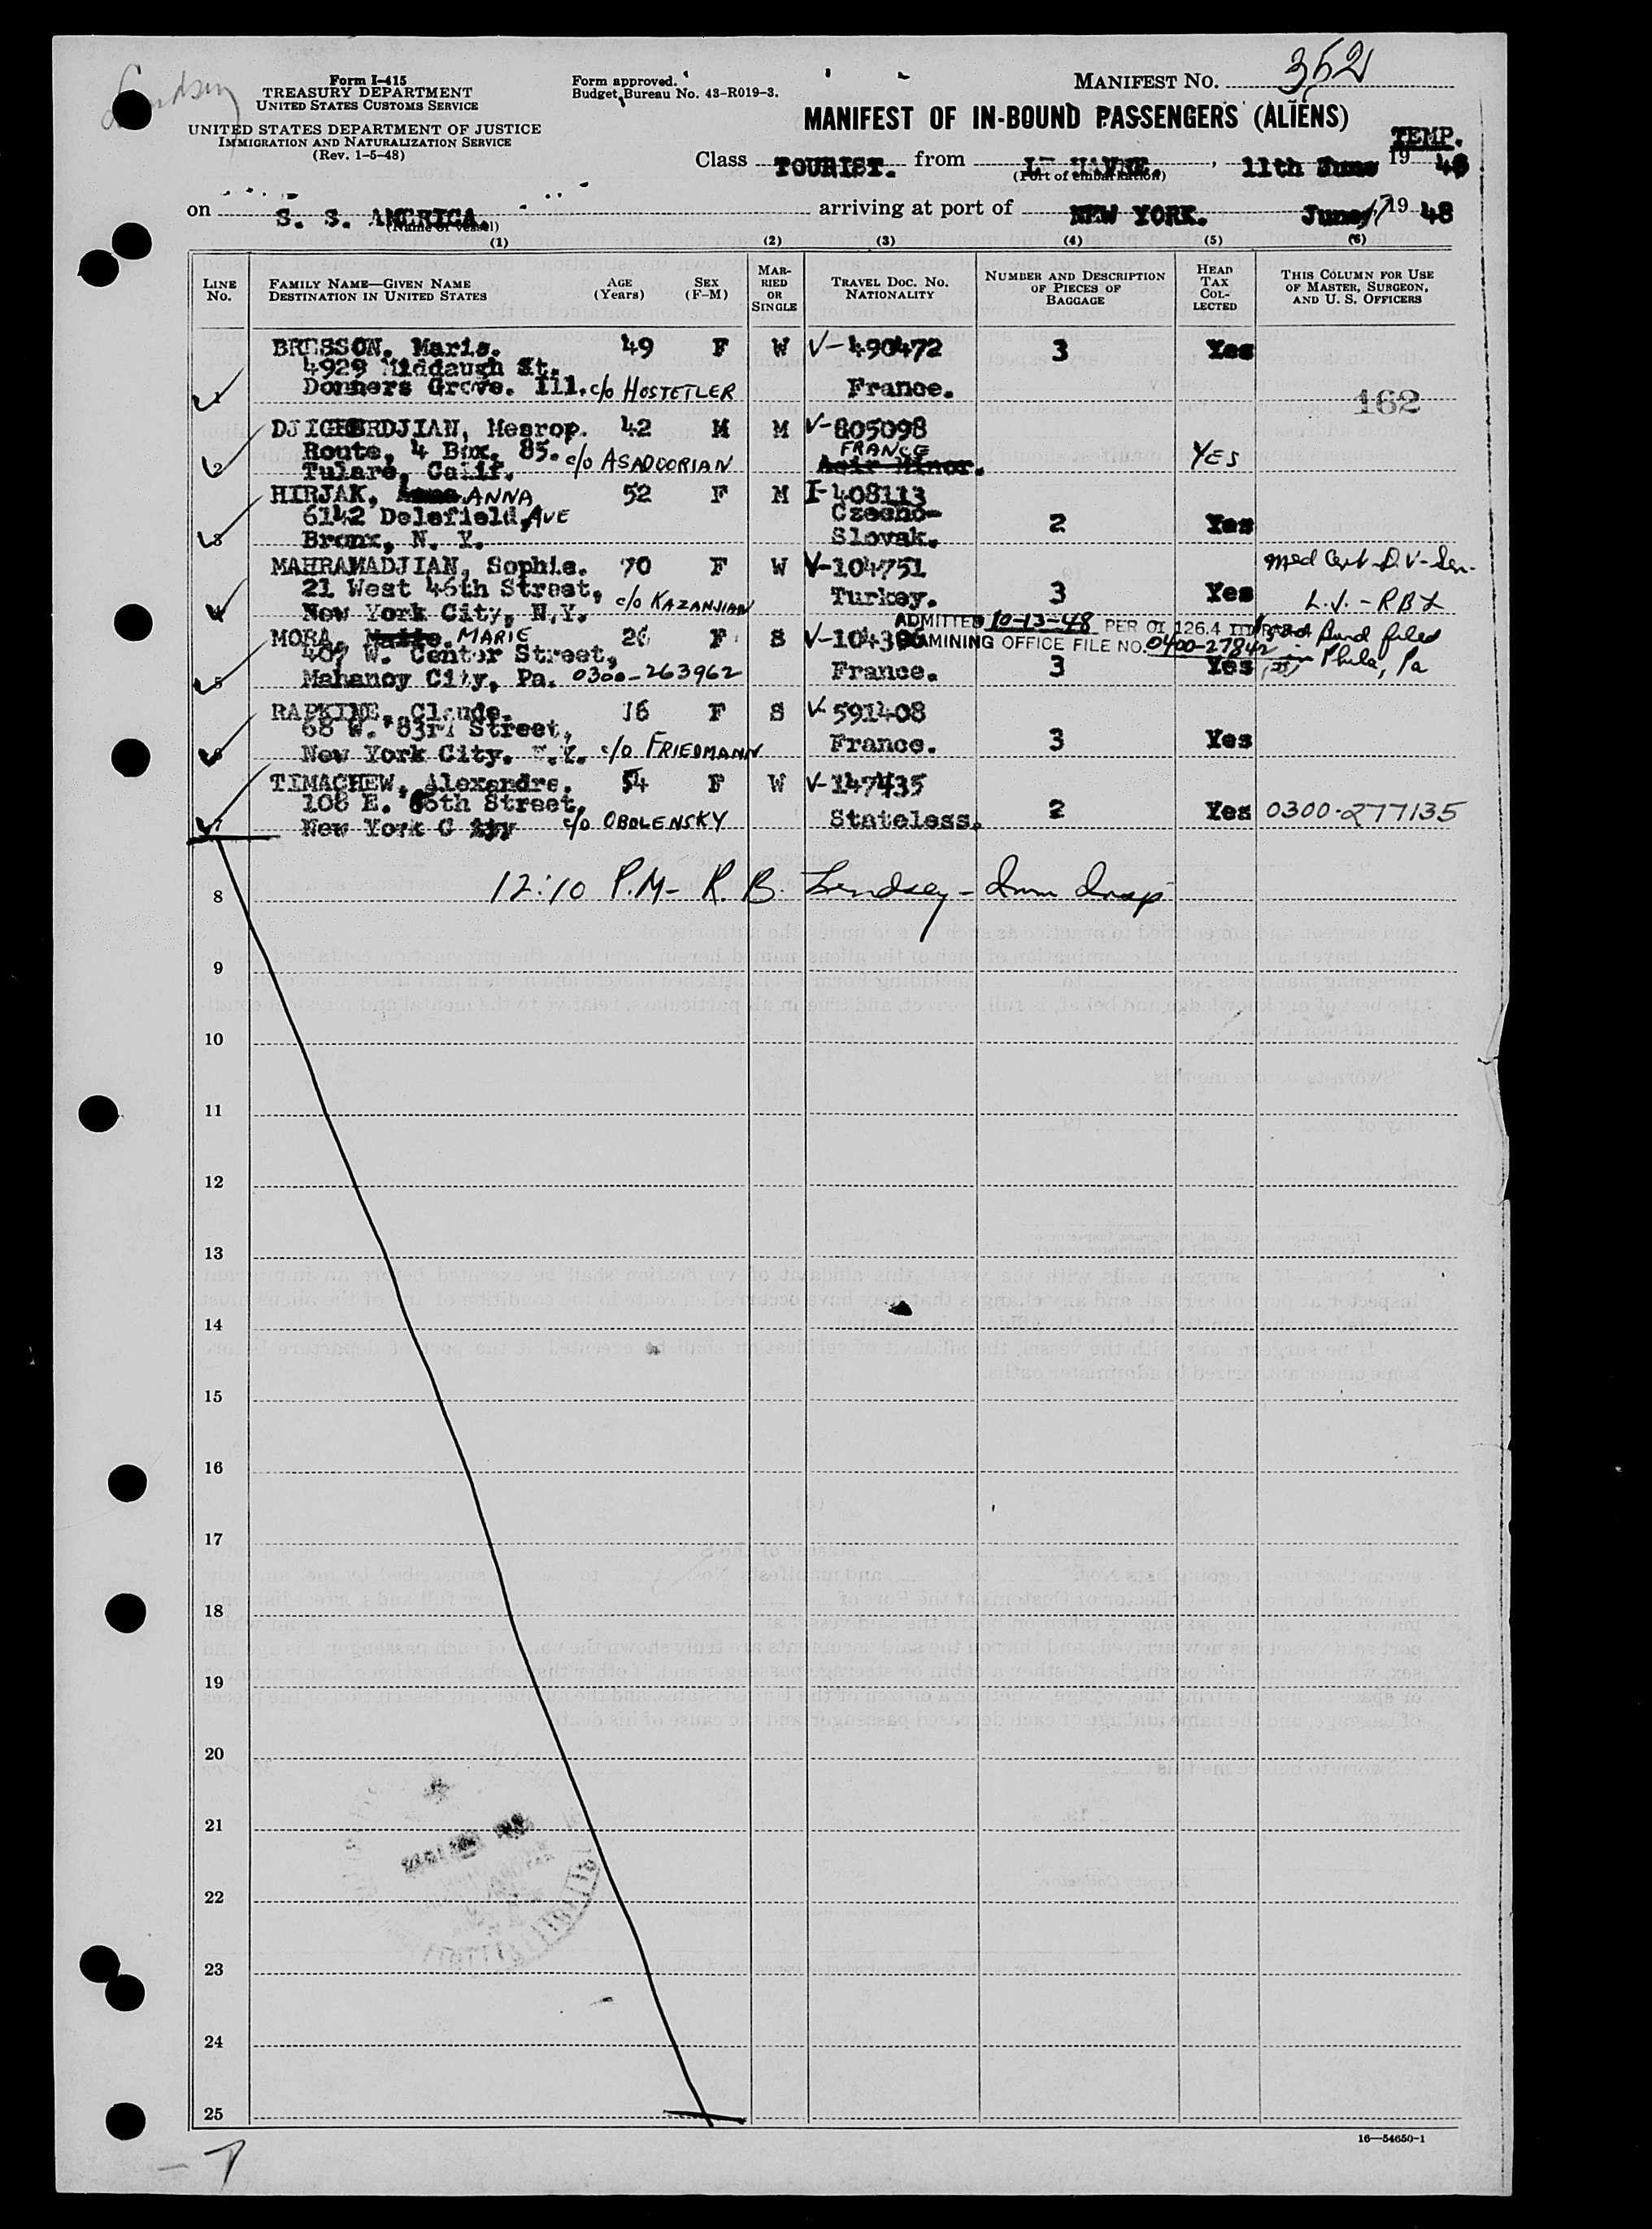 Lindsey
Form I-415
TREASURY DEPARTMENT
UNITED STATES CUSTOMS SERVICE
UNITED STATES DEPARTMENT OF JUSTICE
IMMIGRATION AND NATURALIZATION SERVICE
(Rev. 1-5-48)
Form approved.
Budget Bureau No. 43-R019-3.
MANIFEST No. 352
MANIFEST OF IN-BOUND PASSENGERS (ALIENS)
TEMP.
Class TOURIST. from LE HAVRE. , 11th June 19 48
(Port of embarkation)
on S. S. AMERICA. arriving at port of NEW YORK. June 17 19 48
(Name of vessel)
(1) (2) (3) (4) (5) (6)
LINE No. FAMILY NAME—GIVEN NAME DESTINATION IN UNITED STATES AGE (Years) SEX (F-M) MAR-RIED OR SINGLE TRAVEL DOC. NO. NATIONALITY NUMBER AND DESCRIPTION OF PIECES OF BAGGAGE HEAD TAX COL-LECTED THIS COLUMN FOR USE OF MASTER, SURGEON, AND U. S. OFFICERS
BRESSON, Marie. 49 F W V-490472 3 Yes
4929 Middaugh St.
1 Donners Grove. Ill. c/o HOSTETLER France.
162
DJIGHERDJIAN, Mesrop. 42 M M V-805098
Route, 4 Box. 85. c/o ASADOORIAN FRANCE YES
2 Tulare, Calif. Asir Minor.
HIRJAK, ANNA 52 F M I-408113
6142 Delefield, AVE Czecho- 2 Yes
3 Bronx, N. Y. Slovak.
MAHRAMADJIAN, Sophie. 70 F W V-104751 med Cert
21 West 46th Street, 3 Yes
4 New York City, N.Y. c/o KAZANJIAN Turkey. L.J. - RBL
ADMITTED 10-13-48 PER OI 126.4
MORA, MARIE 26 F S V-1043 Bond filed
EXAMINING OFFICE FILE NO. 0400-27842 in Phila, Pa
407 W. Center Street,
5 Mahanoy City, Pa. 0300-263962 France. 3 Yes
RAPKINE, Claude. 16 F S V-591408
68 W. 83rd Street,
6 New York City. N.Y. c/o FRIEDMANN France. 3 Yes
TIMACHEW, Alexandre. 54 F W V-147435
108 E. 66th Street,
7 New York C ity c/o OBOLENSKY Stateless. 2 Yes 0300-277135
8 12:10 P.M- R. B. Lindsey - Imm Insp
9
10
11
12
13
14
15
16
17
18
19
20
21
22
23
24
25
16—54650-1
- 7